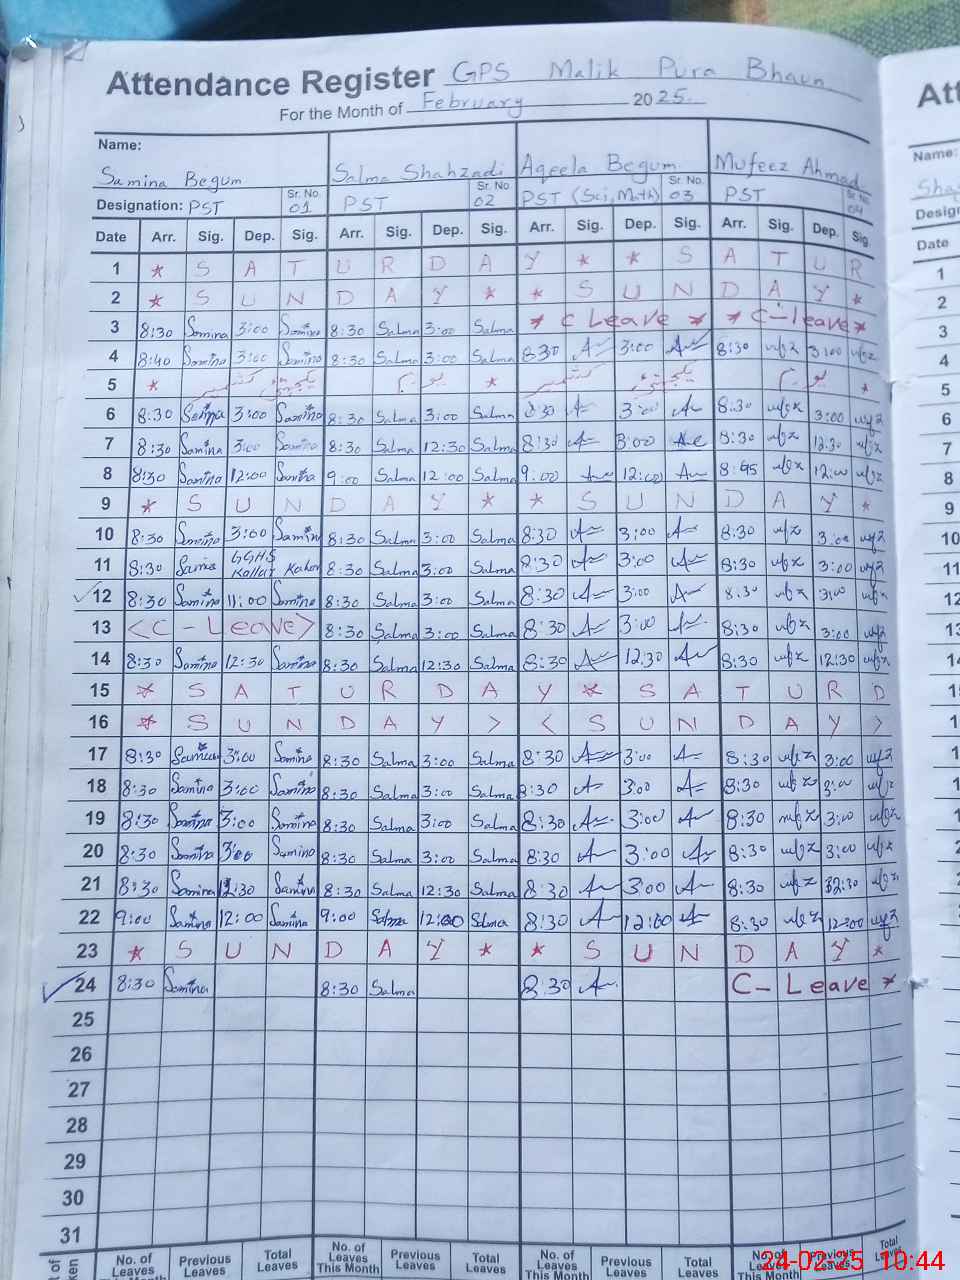 Attendance Register GPS Malik Pura Bhaun
For the Month of February 2025
Name: Samina Begum Salma Shahzadi Aqeela Begum Mufeez Ahmad
Designation: PST Sr. No. 01 PST Sr. No. 02 PST (Sci, Math) Sr. No. 03 PST Sr. No. 04
Date Arr. Sig. Dep. Sig. Arr. Sig. Dep. Sig. Arr. Sig. Dep. Sig. Arr. Sig. Dep. Sig.
1 * S A T U R D A Y * * S A T U R
2 * S U N D A Y * * S U N D A Y *
3 8:30 Samina 3:00 Samina 8:30 Salma 3:00 Salma * C Leave * * C-leave *
4 8:40 Samina 3:00 Samina 8:30 Salma 3:00 Salma 8:30 3:00 8:30 3:00
5 * کشمیر یکجہتی یوم * کشمیر یکجہتی یوم *
6 8:30 Samina 3:00 Samina 8:30 Salma 3:00 Salma 8:30 3:00 8:30 3:00
7 8:30 Samina 3:00 Samina 8:30 Salma 12:30 Salma 8:30 3:00 8:30 12:30
8 8:30 Samina 12:00 Samina 9:00 Salma 12:00 Salma 9:00 12:00 8:45 12:00
9 * S U N D A Y * * S U N D A Y *
10 8:30 Samina 3:00 Samina 8:30 Salma 3:00 Salma 8:30 3:00 8:30 3:00
11 8:30 Samina GGHS Kallar Kahar 8:30 Salma 3:00 Salma 8:30 3:00 8:30 3:00
12 8:30 Samina 11:00 Samina 8:30 Salma 3:00 Salma 8:30 3:00 8:30 3:00
13 <C - Leave> 8:30 Salma 3:00 Salma 8:30 3:00 8:30 3:00
14 8:30 Samina 12:30 Samina 8:30 Salma 12:30 Salma 8:30 12:30 8:30 12:30
15 * S A T U R D A Y * S A T U R D
16 * S U N D A Y > < S U N D A Y >
17 8:30 Samina 3:00 Samina 8:30 Salma 3:00 Salma 8:30 3:00 8:30 3:00
18 8:30 Samina 3:00 Samina 8:30 Salma 3:00 Salma 8:30 3:00 8:30 3:00
19 8:30 Samina 3:00 Samina 8:30 Salma 3:00 Salma 8:30 3:00 8:30 3:00
20 8:30 Samina 3:00 Samina 8:30 Salma 3:00 Salma 8:30 3:00 8:30 3:00
21 8:30 Samina 12:30 Samina 8:30 Salma 12:30 Salma 8:30 3:00 8:30 12:30
22 9:00 Samina 12:00 Samina 9:00 Salma 12:00 Salma 8:30 12:00 8:30 12:00
23 * S U N D A Y * * S U N D A Y *
24 8:30 Samina 8:30 Salma 8:30 C- Leave *
25
26
27
28
29
30
31
No. of Leaves This Month Previous Leaves Total Leaves No. of Leaves This Month Previous Leaves Total Leaves No. of Leaves This Month Previous Leaves Total Leaves No. of Leaves Previous Leaves Total Leaves
24-02-25 10:44
Name:
Date
1
2
3
4
5
6
7
8
9
10
11